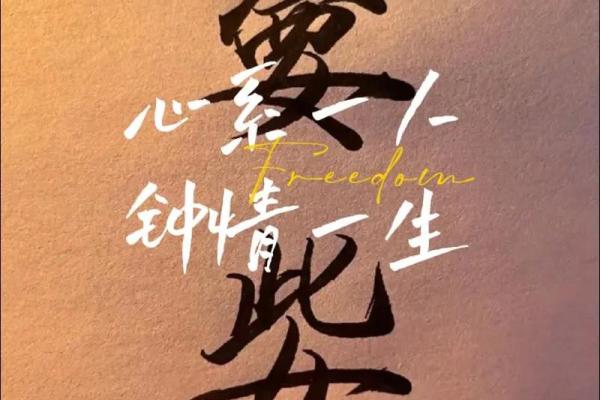 心系一人
Freedom
钟情一生
此